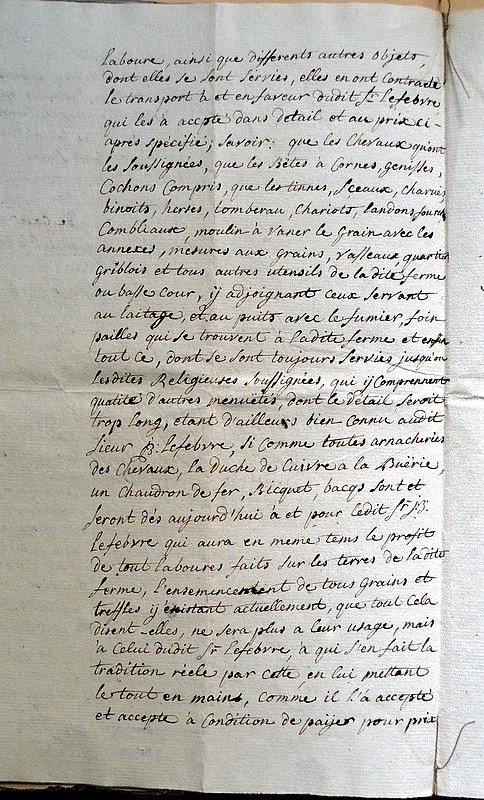 Laboure, ainsi que differents autres objets,
dont elles se sont servies, elles en ont Contracté
le transport à et en faveur dudit Sr. Lefebvre
qui les à accepté dans détail et au prix ci-
après specifié; savoir: que les Chevaux qu'ont
les Soussignées, que les Bêtes à Cornes, genisses,
Cochons Compris, que les tinnes, Sceaux, charues,
binoits, herses, tomberau, Chariots, landons, fourch
Combleaux, moulin à vaner le Grain avec les
annexes, mesures aux grains, vasseaux, quartier
griblois et tous autres utensils de la dite ferme
ou basse Cour, ij adjoignant ceux servant
au laitage, et au puits avec le fumier, foin
pailles qui se trouvent à ladite ferme et enfin
tout ce, dont se sont toujours servies jusqu'on
lesdites Religieuses Soussignées, qui ij Comprennent
quatité d'autres menuetés, dont le détail seroit
trop long, etant d'ailleurs bien connu audit
Sieur J.B: Lefebvre, Si Comme toutes arnacheries
des Chevaux, la Duche de Cuivre a la Buërie,
un Chaudron de fer, Ricquet, bacqs sont et
seront dés aujourd'hui à et pour lèdit Sr. J:B.
Lefebvre qui aura en meme tems le profit
de tout laboures faits sur les terres de ladite
ferme, l'ensemencement de tous grains et
treffles ij existant actuellement, que tout Cela
disent-elles, ne sera plus a leur usage, mais
à Celui dudit Sr. Lefebvre, à qui s'en fait la
tradition réele par Cette, en lui mettant
le tout en mains, Comme il l'a accepté
et accepte à Condition de païjer pour prix